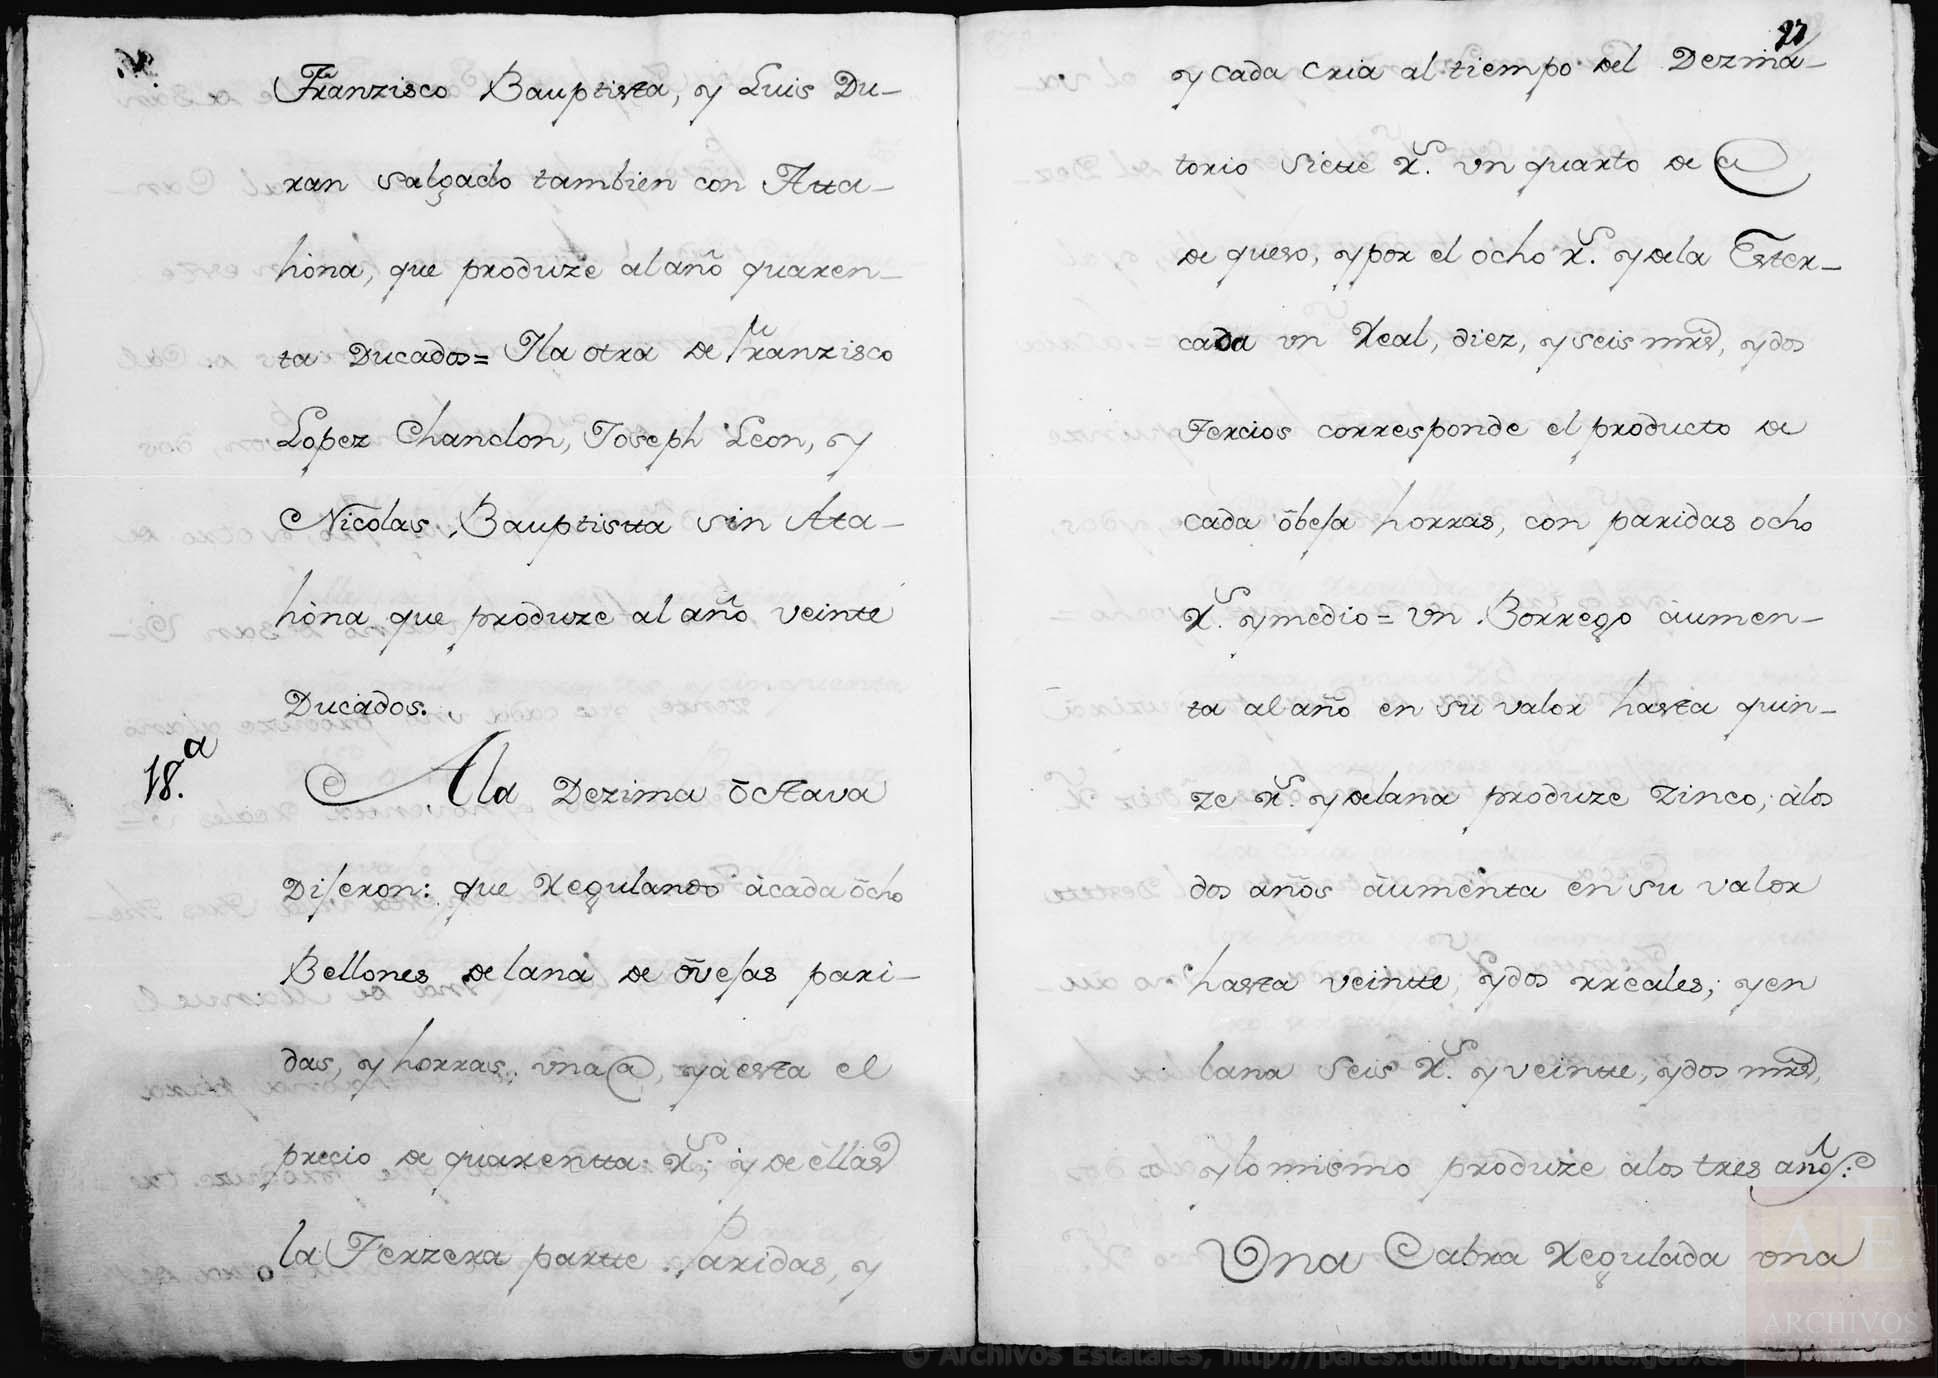 Franzisco Bauptista, y Luis Du-
ran Salgado tambien con Atta-
hona, que produze al año quaren-
ta Ducados= Yla otra de Franzisco
Lopez Chanclon, Joseph Leon, y
Nicolas Bauptistta sin Atta-
hona que produze al año veinte
Ducados.
18.a
A la Dezima octava
Dijeron: que Regulando àcada ōcho
Bellones de lana de ōvejas pari-
das, y horras, vna @, y à esta el
precio de quarentta Rs; y de ellas
la Terzera partte Paridas, y
27
y cada cria al tiempo del Dezma-
torio Siette Rs. vn quarto de @
de queso, y por el ocho Rs. y dela Ester-
cada vn Real, diez, y seis mrs, y dos
Tercios corresponde el producto de
cada ōbeja horras, con paridas ocho
Rs. y medio = Vn Borrego àumen-
ta al año en su valor hasta quin-
ze Rs. y delana produze zinco, àlos
dos años àumenta en su valor
hasta veintte, y dos rreales, y en
lana Seis Rs. y veintte, y dos mrs,
y lo mismo produze àlos tres años:
Una Cabra Regulada vna
© Archivos Estatales, http://pares.culturaydeporte.gob.es
AE
ARCHIVOS
ESTATALES